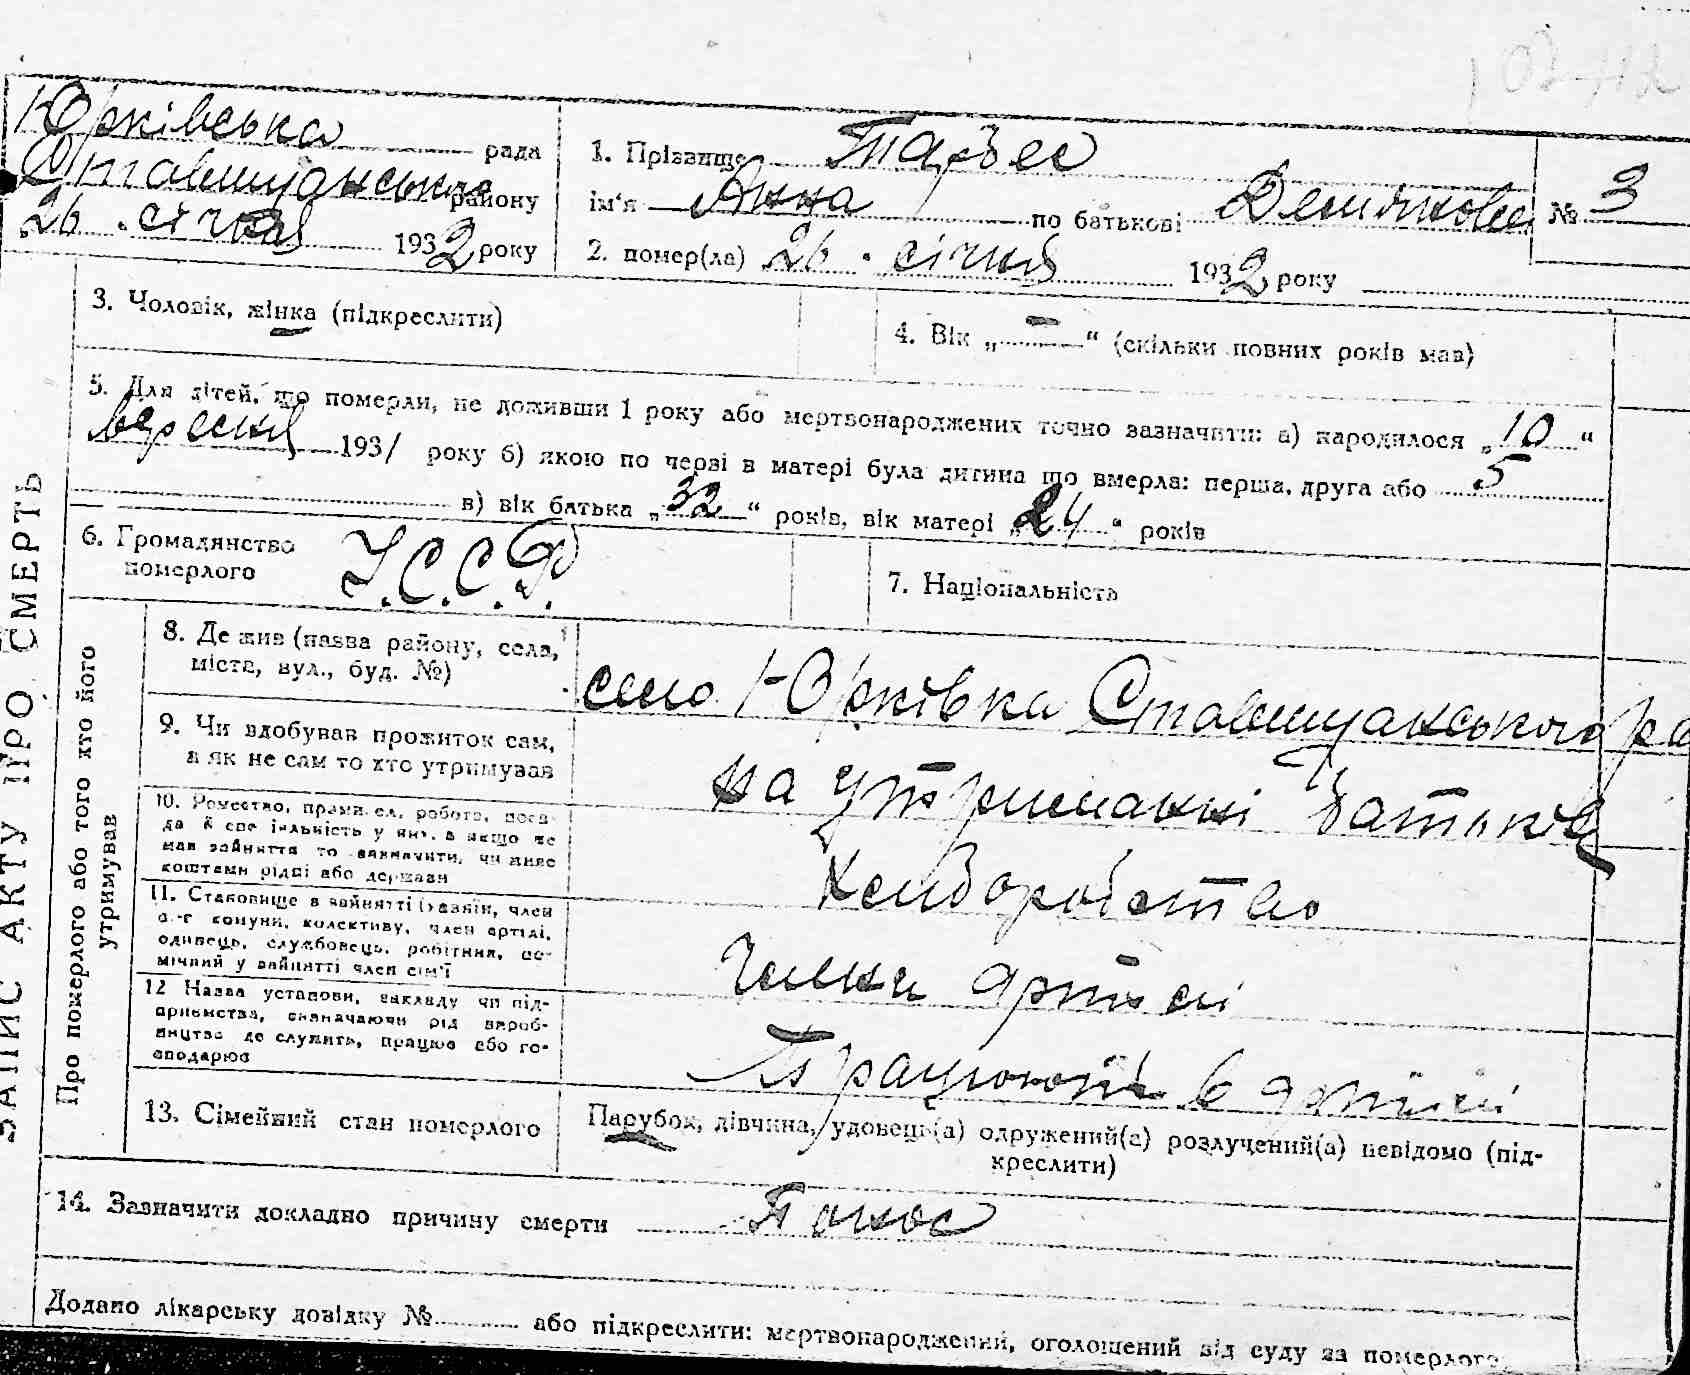 Юрківська рада
Ставищанського району
26 січня 1932 року
1. Прізвище
ім'я Анна по батькові
№ 3
2. помер(ла) 26 січня 1932 року
3. Чоловік, жінка (підкреслити)
4. Вік „ — “ (скільки повних років мав)
5. Для дітей, що померли, не доживши 1 року або мертвонароджених точно зазначити: а) народилося „10“
вересня 1931 року б) якою по черзі в матері була дитина що вмерла: перша, друга або 5
в) вік батька „32“ років, вік матері „24“ років
6. Громадянство
померлого
У.С.С.Р.
7. Національність
ЗАПИС АКТУ ПРО СМЕРТЬ
Про померлого або того хто його
утримував
8. Де жив (назва району, села,
міста, вул., буд. №)
село Юрківка Ставищанського ра
9. Чи здобував прожиток сам,
а як не сам то хто утримував
на утриманні батьків
10. Ремество, промисел, робота, поса-
да й спеціальність у них, а якщо не
мав зайняття то зазначити, чи живе
коштами рідні або держави
Хліборобство
11. Становище в зайнятті (хазяїн, член
с.-г комуни, колективу, член артілі,
одинець, службовець, робітник, по-
мічний у зайнятті член сім'ї
Члени артілі
12 Назва установи, закладу чи під-
приємства, зазначаючи рід вироб-
ництва де служить, працює або го-
сподарює
Працюють в артілі
13. Сімейний стан померлого
Парубок, дівчина, удовець(а) одружений(а) розлучений(а) невідомо (під-
креслити)
14. Зазначити докладно причину смерти Понос
Додано лікарську довідку № або підкреслити: мертвонароджений, оголошений від суду за померлого